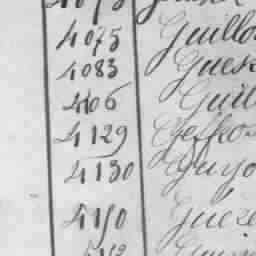 4075 Guillo
4083 Gues
4106 Guil
4129 Geffro
4130 Guyo
4150 Guere